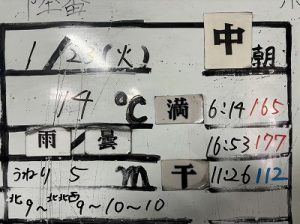 1/23(火) 中 朝
14℃ 満 6:14 165
雨/曇 16:53 177
うねり 5m 干 11:26 112
北9~北北西9~10~10